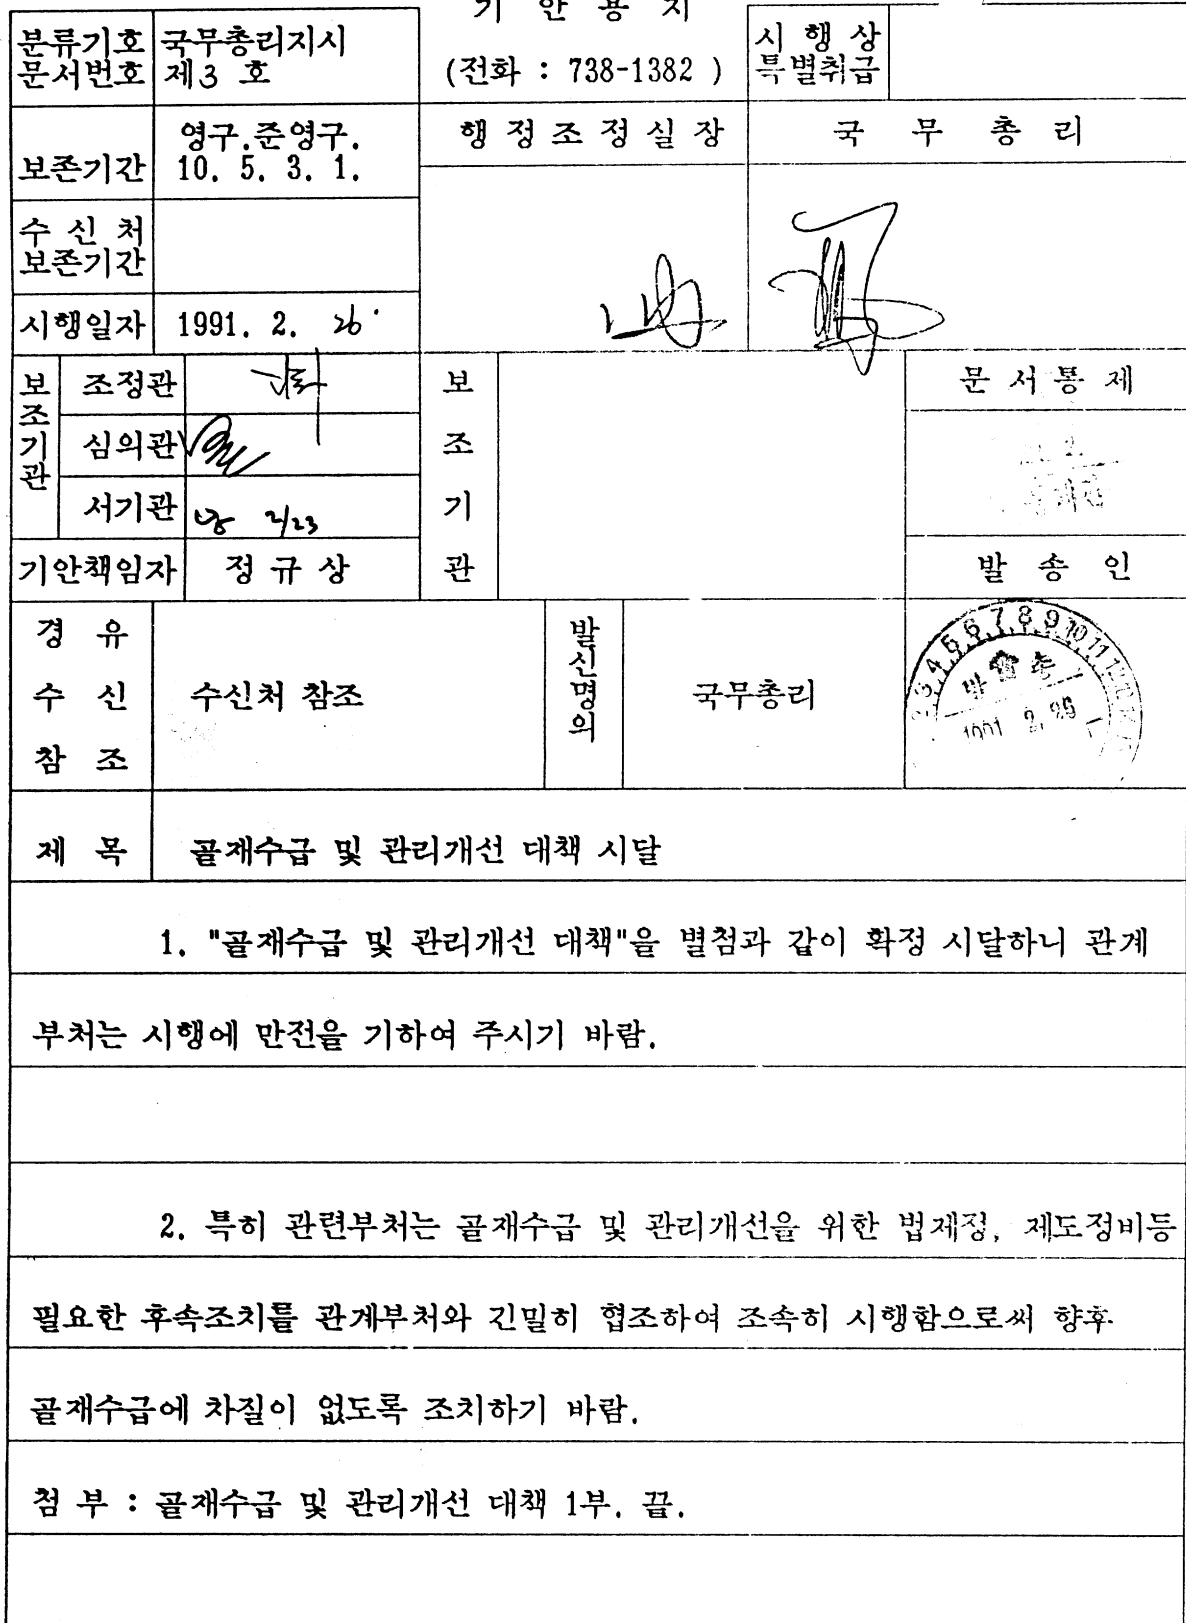 기 안 용 지
분류기호 국무총리지시
문서번호 제3 호
(전화 : 738-1382 )
시 행 상
특별취급
보존기간
영구.준영구.
10. 5. 3. 1.
행 정 조 정 실 장
국 무 총 리
수 신 처
보존기간
시행일자 1991. 2. 26.
보조기관
조정관
심의관
서기관 2/23
기안책임자 정 규 상
보조기관
문 서 통 제
발 송 인
경 유
수 신 수신처 참조
참 조
발신명의
국무총리
3 4 5 6 7 8 9 10 11 12
1991 2. 26
제 목 골재수급 및 관리개선 대책 시달
1. "골재수급 및 관리개선 대책"을 별첨과 같이 확정 시달하니 관계
부처는 시행에 만전을 기하여 주시기 바람.
2. 특히 관련부처는 골재수급 및 관리개선을 위한 법제정, 제도정비등
필요한 후속조치를 관계부처와 긴밀히 협조하여 조속히 시행함으로써 향후
골재수급에 차질이 없도록 조치하기 바람.
첨 부 : 골재수급 및 관리개선 대책 1부. 끝.